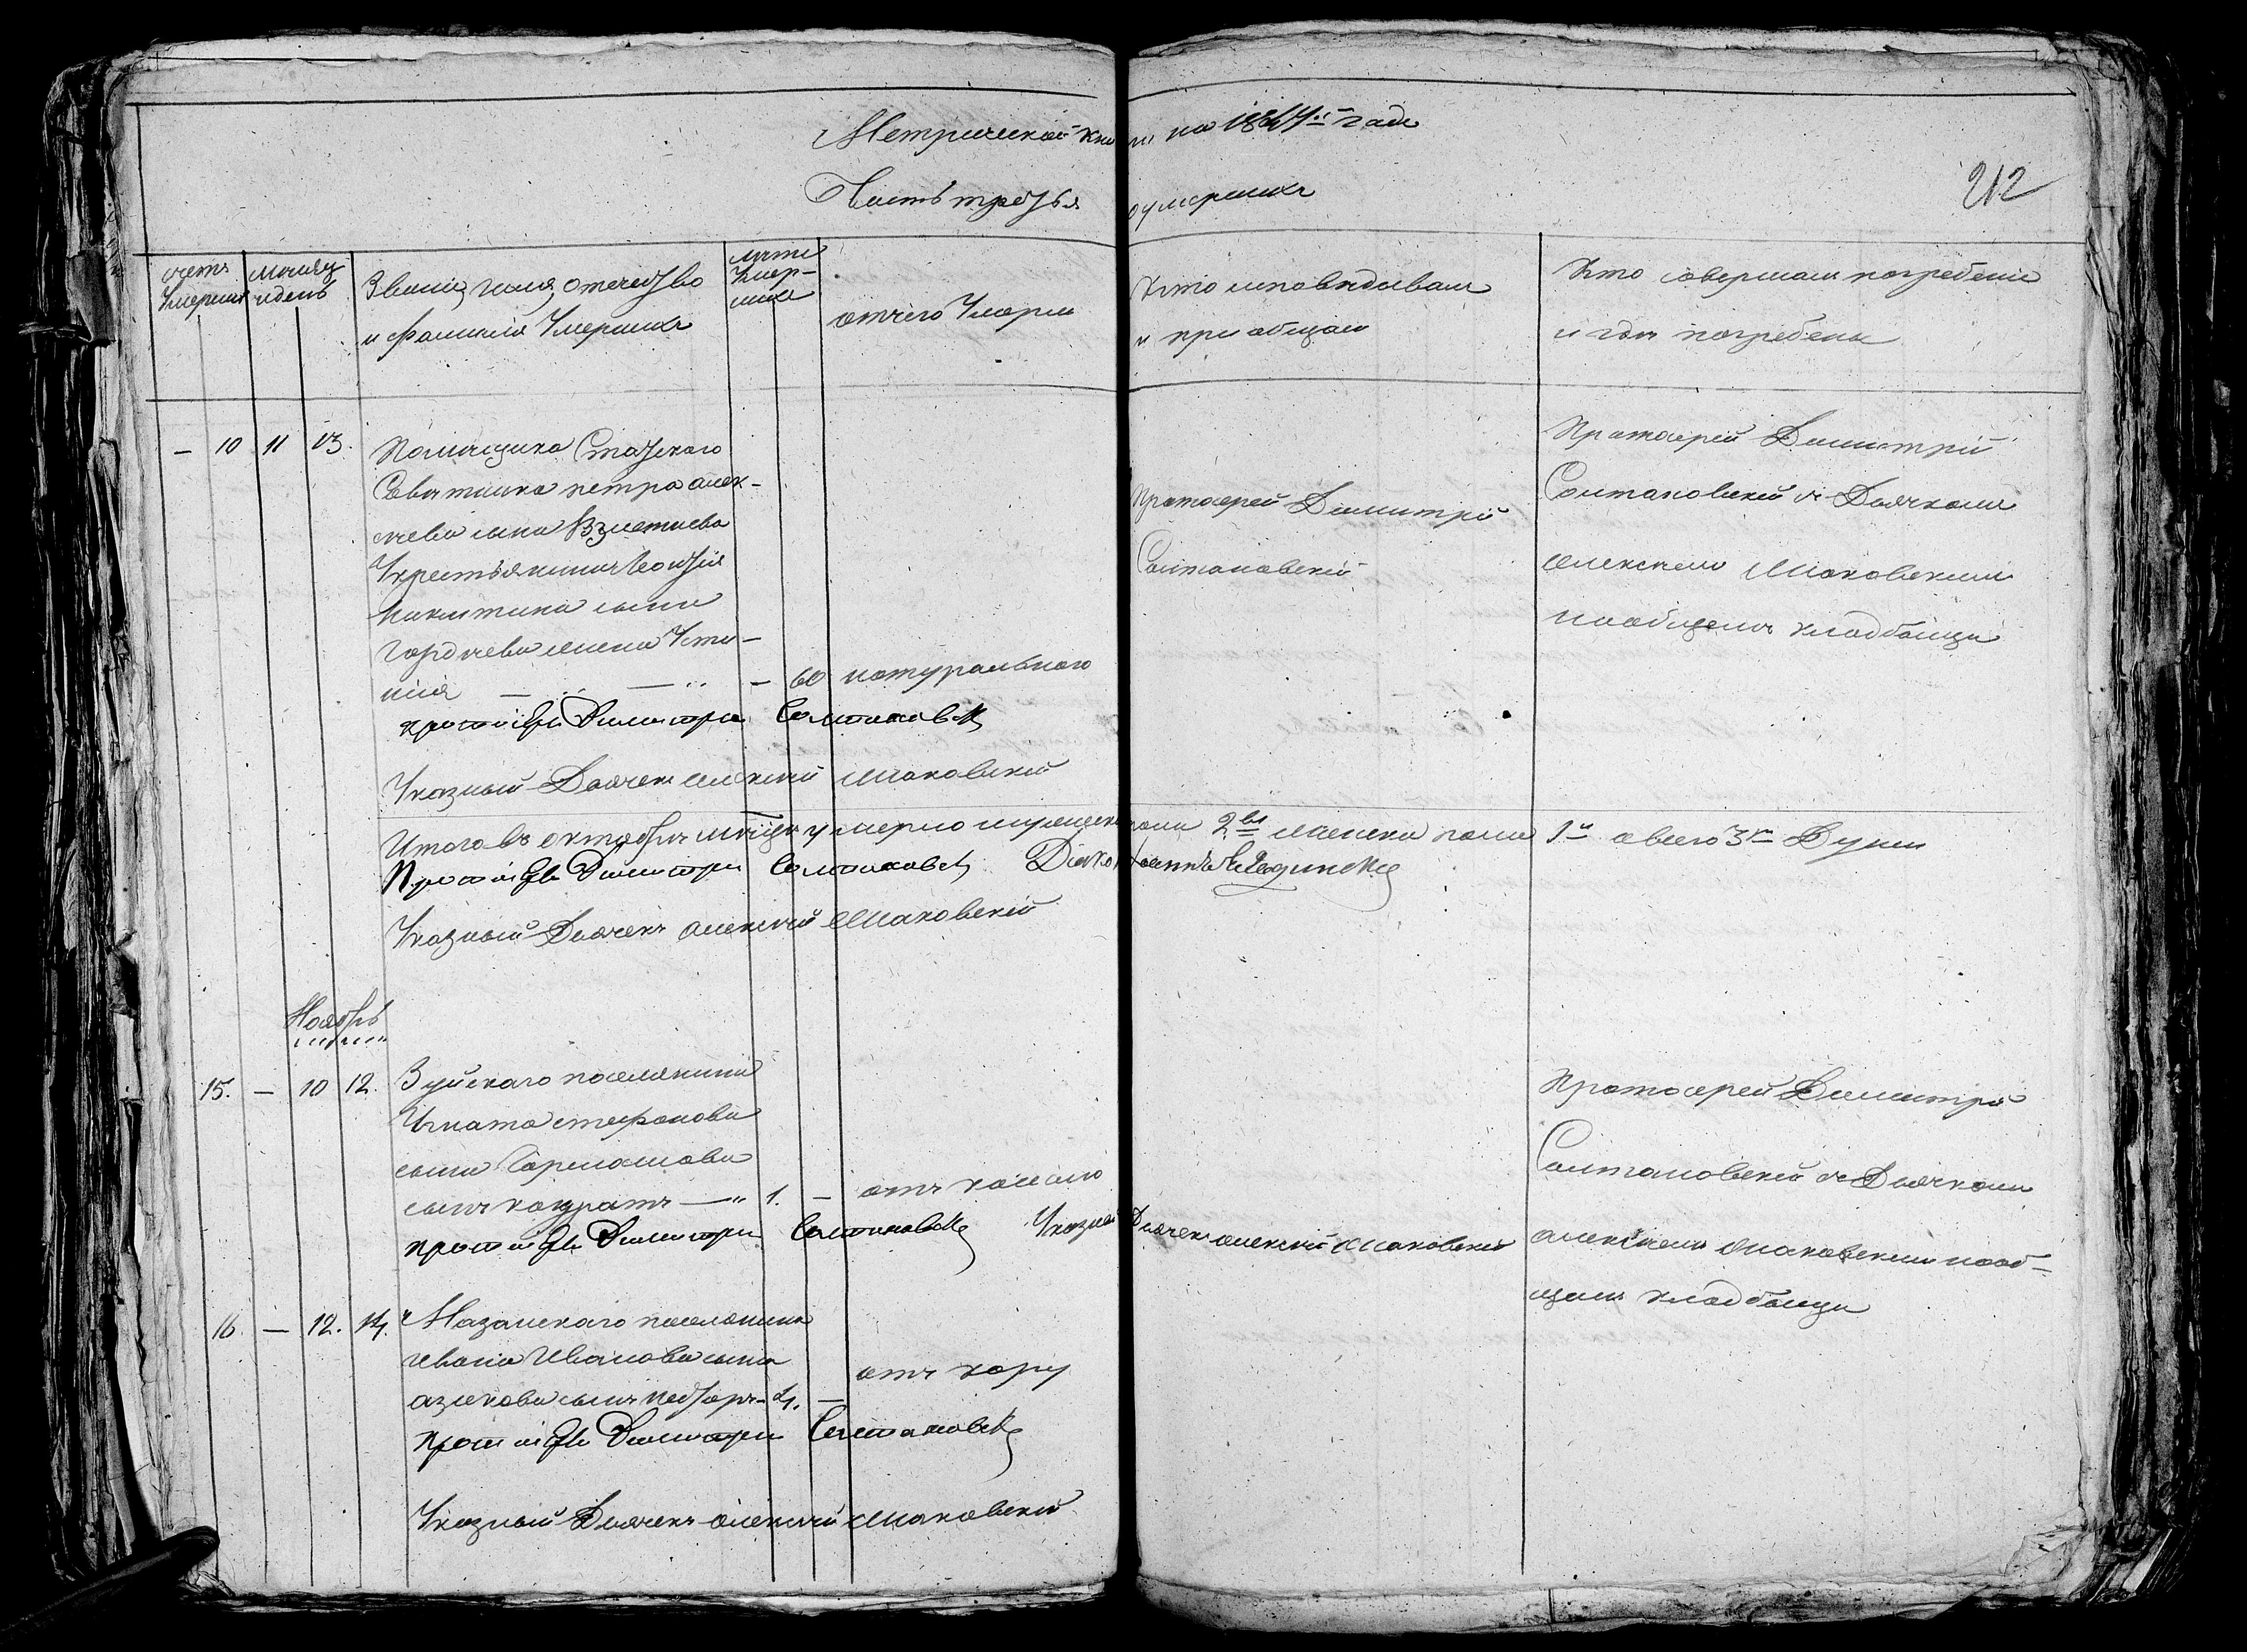 Метрической книги на 1847й годъ
Часть третья о умершихъ
212
счетъ
Умершихъ
месяцъ
и день
Званіе, имя, отечество
и фамилія Умершихъ
лѣта
Умер-
шихъ
отчего Умерли
Кто исповѣдывалъ
и пріобщалъ
Кто совершалъ погребеніе
и гдѣ погребены
— 10 11 13.
Помѣщика Статского
Совѣтника петра алек-
сѣева сына
Крестьянина
никитина сына
Гордѣева жена Усти-
нія — — — 60 натурального
Протоіерей Димитрій
Солтановскій
Протоіерей Димитрій
Солтановскій съ Дьячкомъ
алексѣемъ Маковскимъ
на общемъ кладбищѣ
протоіерей Димитрій Солтановскій
Указный Дьячекъ алексѣй Маковскій
Итого въ октябрѣ мѣсяцѣ умерло мужеска пола 2ва женска пола 1а а всего 3ри Души
Протоіерей Димитрій Солтановскій Діаконъ Іоаннъ
Указный Дьячекъ алексѣй Маковскій
Ноябрь
15. — 10 12.
Зуйскаго поселянина
Игната стефанова
сына
сынъ кондратъ — 1. — отъ кашлю
Протоіерей Димитрій
Солтановскій съ Дьячкомъ
алексѣемъ Маковскимъ на об-
щемъ кладбищѣ
протоіерей Димитрій Солтановскій Указный Дьячекъ алексѣй Маковскій
16. — 12. 14.
Мазанскаго поселянина
Ивана Иванова сына
сынъ — 4. — отъ кору
протоіерей Димитрій Солтановскій
Указный Дьячекъ алексѣй Маковскій